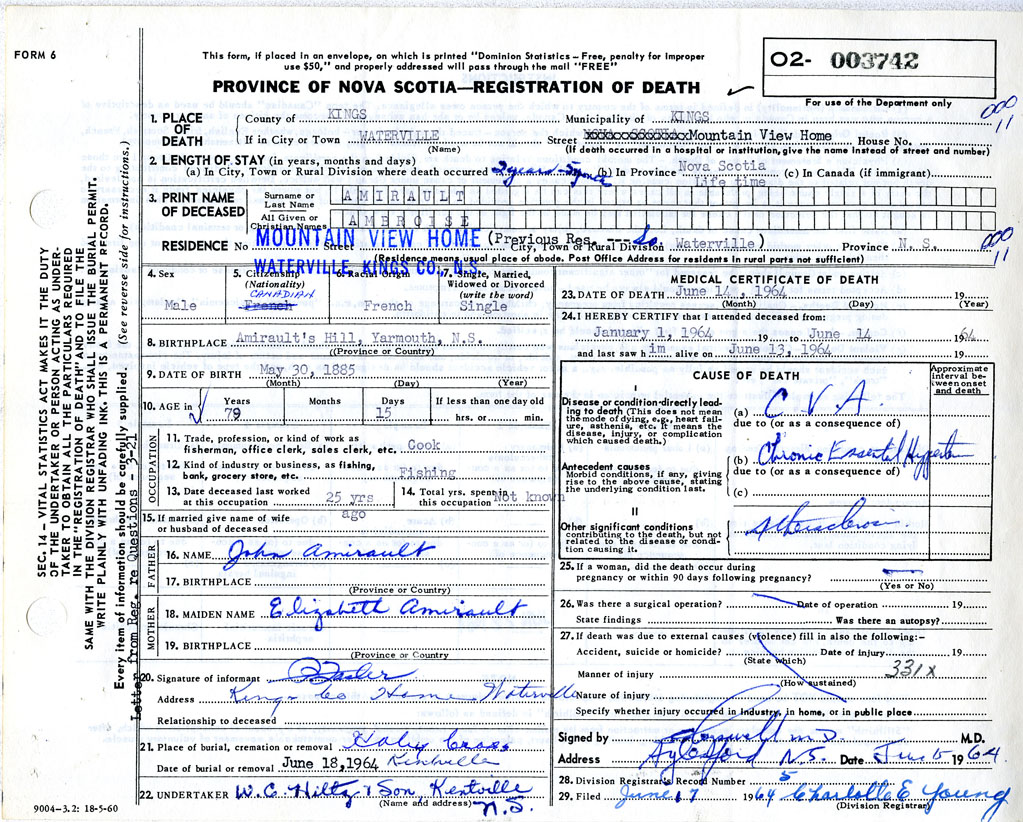 FORM 6
This form, if placed in an envelope, on which is printed "Dominion Statistics – Free, penalty for improper
use $50," and properly addressed will pass through the mail "FREE"
O2- 003742
PROVINCE OF NOVA SCOTIA—REGISTRATION OF DEATH
For use of the Department only
000
11
1. PLACE OF DEATH
County of KINGS Municipality of KINGS
If in City or Town WATERVILLE Street Mountain View Home House No.
(Name) (If death occurred in a hospital or institution, give the name instead of street and number)
2. LENGTH OF STAY (in years, months and days)
(a) In City, Town or Rural Division where death occurred 2 years (b) In Province Nova Scotia Life time (c) In Canada (if immigrant)
3. PRINT NAME OF DECEASED
Surname or Last Name AMIRAULT
All Given or Christian Names AMBROISE
RESIDENCE No MOUNTAIN VIEW HOME Street (Previous Res. --- So. Waterville) City, Town or Rural Division Province N. S.
000
11
WATERVILLE, KINGS CO., N.S.
(Residence means usual place of abode. Post Office Address for residents in rural parts not sufficient)
4. Sex Male
5. Citizenship (Nationality) CANADIAN French
6. Racial Origin French
7. Single, Married, Widowed or Divorced (write the word) Single
8. BIRTHPLACE Amirault's Hill, Yarmouth, N.S.
(Province or Country)
9. DATE OF BIRTH May 30, 1885
(Month) (Day) (Year)
10. AGE in Years 79 Months Days 15 If less than one day old hrs. or min.
OCCUPATION
11. Trade, profession, or kind of work as
fisherman, office clerk, sales clerk, etc. Cook
12. Kind of industry or business, as fishing,
bank, grocery store, etc. Fishing
13. Date deceased last worked at this occupation 25 yrs ago
14. Total yrs. spent in this occupation Not known
15. If married give name of wife
or husband of deceased
FATHER
16. NAME John Amirault
17. BIRTHPLACE
(Province or Country)
MOTHER
18. MAIDEN NAME Elizabeth Amirault
19. BIRTHPLACE
(Province or Country
20. Signature of informant
Address Kings Co Home Waterville
Relationship to deceased
21. Place of burial, cremation or removal Holy Cross
Date of burial or removal June 18, 1964 Kentville
22. UNDERTAKER W. C. Hiltz & Son, Kentville
(Name and address) N.S.
MEDICAL CERTIFICATE OF DEATH
23. DATE OF DEATH June 14, 1964 19
(Month) (Day) (Year)
24. I HEREBY CERTIFY that I attended deceased from:
January 1, 1964 19 to June 14 1964
and last saw him alive on June 13, 1964 19
CAUSE OF DEATH
Approximate interval between onset and death
I
Disease or condition directly leading to death (This does not mean the mode of dying, e.g., heart failure, asthenia, etc. It means the disease, injury, or complication which caused death.)
(a) C.V.A.
due to (or as a consequence of)
Antecedent causes
Morbid conditions, if any, giving rise to the above cause, stating the underlying condition last.
(b) Chronic Essential Hyperten
due to (or as a consequence of)
(c)
II
Other significant conditions
contributing to the death, but not related to the disease or condition causing it.
25. If a woman, did the death occur during
pregnancy or within 90 days following pregnancy?
(Yes or No)
26. Was there a surgical operation? Date of operation 19
State findings Was there an autopsy?
27. If death was due to external causes (violence) fill in also the following:–
Accident, suicide or homicide? Date of injury 19
(State which)
Manner of injury 331X
(How sustained)
Nature of injury
Specify whether injury occurred in industry, in home, or in public place
Signed by M.D. M.D.
Address Aylesford N.S. Date Jun 15 1964
28. Division Registrar's Record Number 5
29. Filed June 17 1964 Charlotte E Young
(Division Registrar)
9004–3.2: 18-5-60
SEC. 14 – VITAL STATISTICS ACT MAKES IT THE DUTY
OF THE UNDERTAKER OR PERSON ACTING AS UNDER-
TAKER TO OBTAIN ALL THE PARTICULARS REQUIRED
IN THE "REGISTRATION OF DEATH" AND TO FILE THE
SAME WITH THE DIVISION REGISTRAR WHO SHALL ISSUE THE BURIAL PERMIT.
WRITE PLAINLY WITH UNFADING INK. THIS IS A PERMANENT RECORD.
Every item of information should be carefully supplied (See reverse side for instructions.)
Letter from Reg. re Questions - 3-21